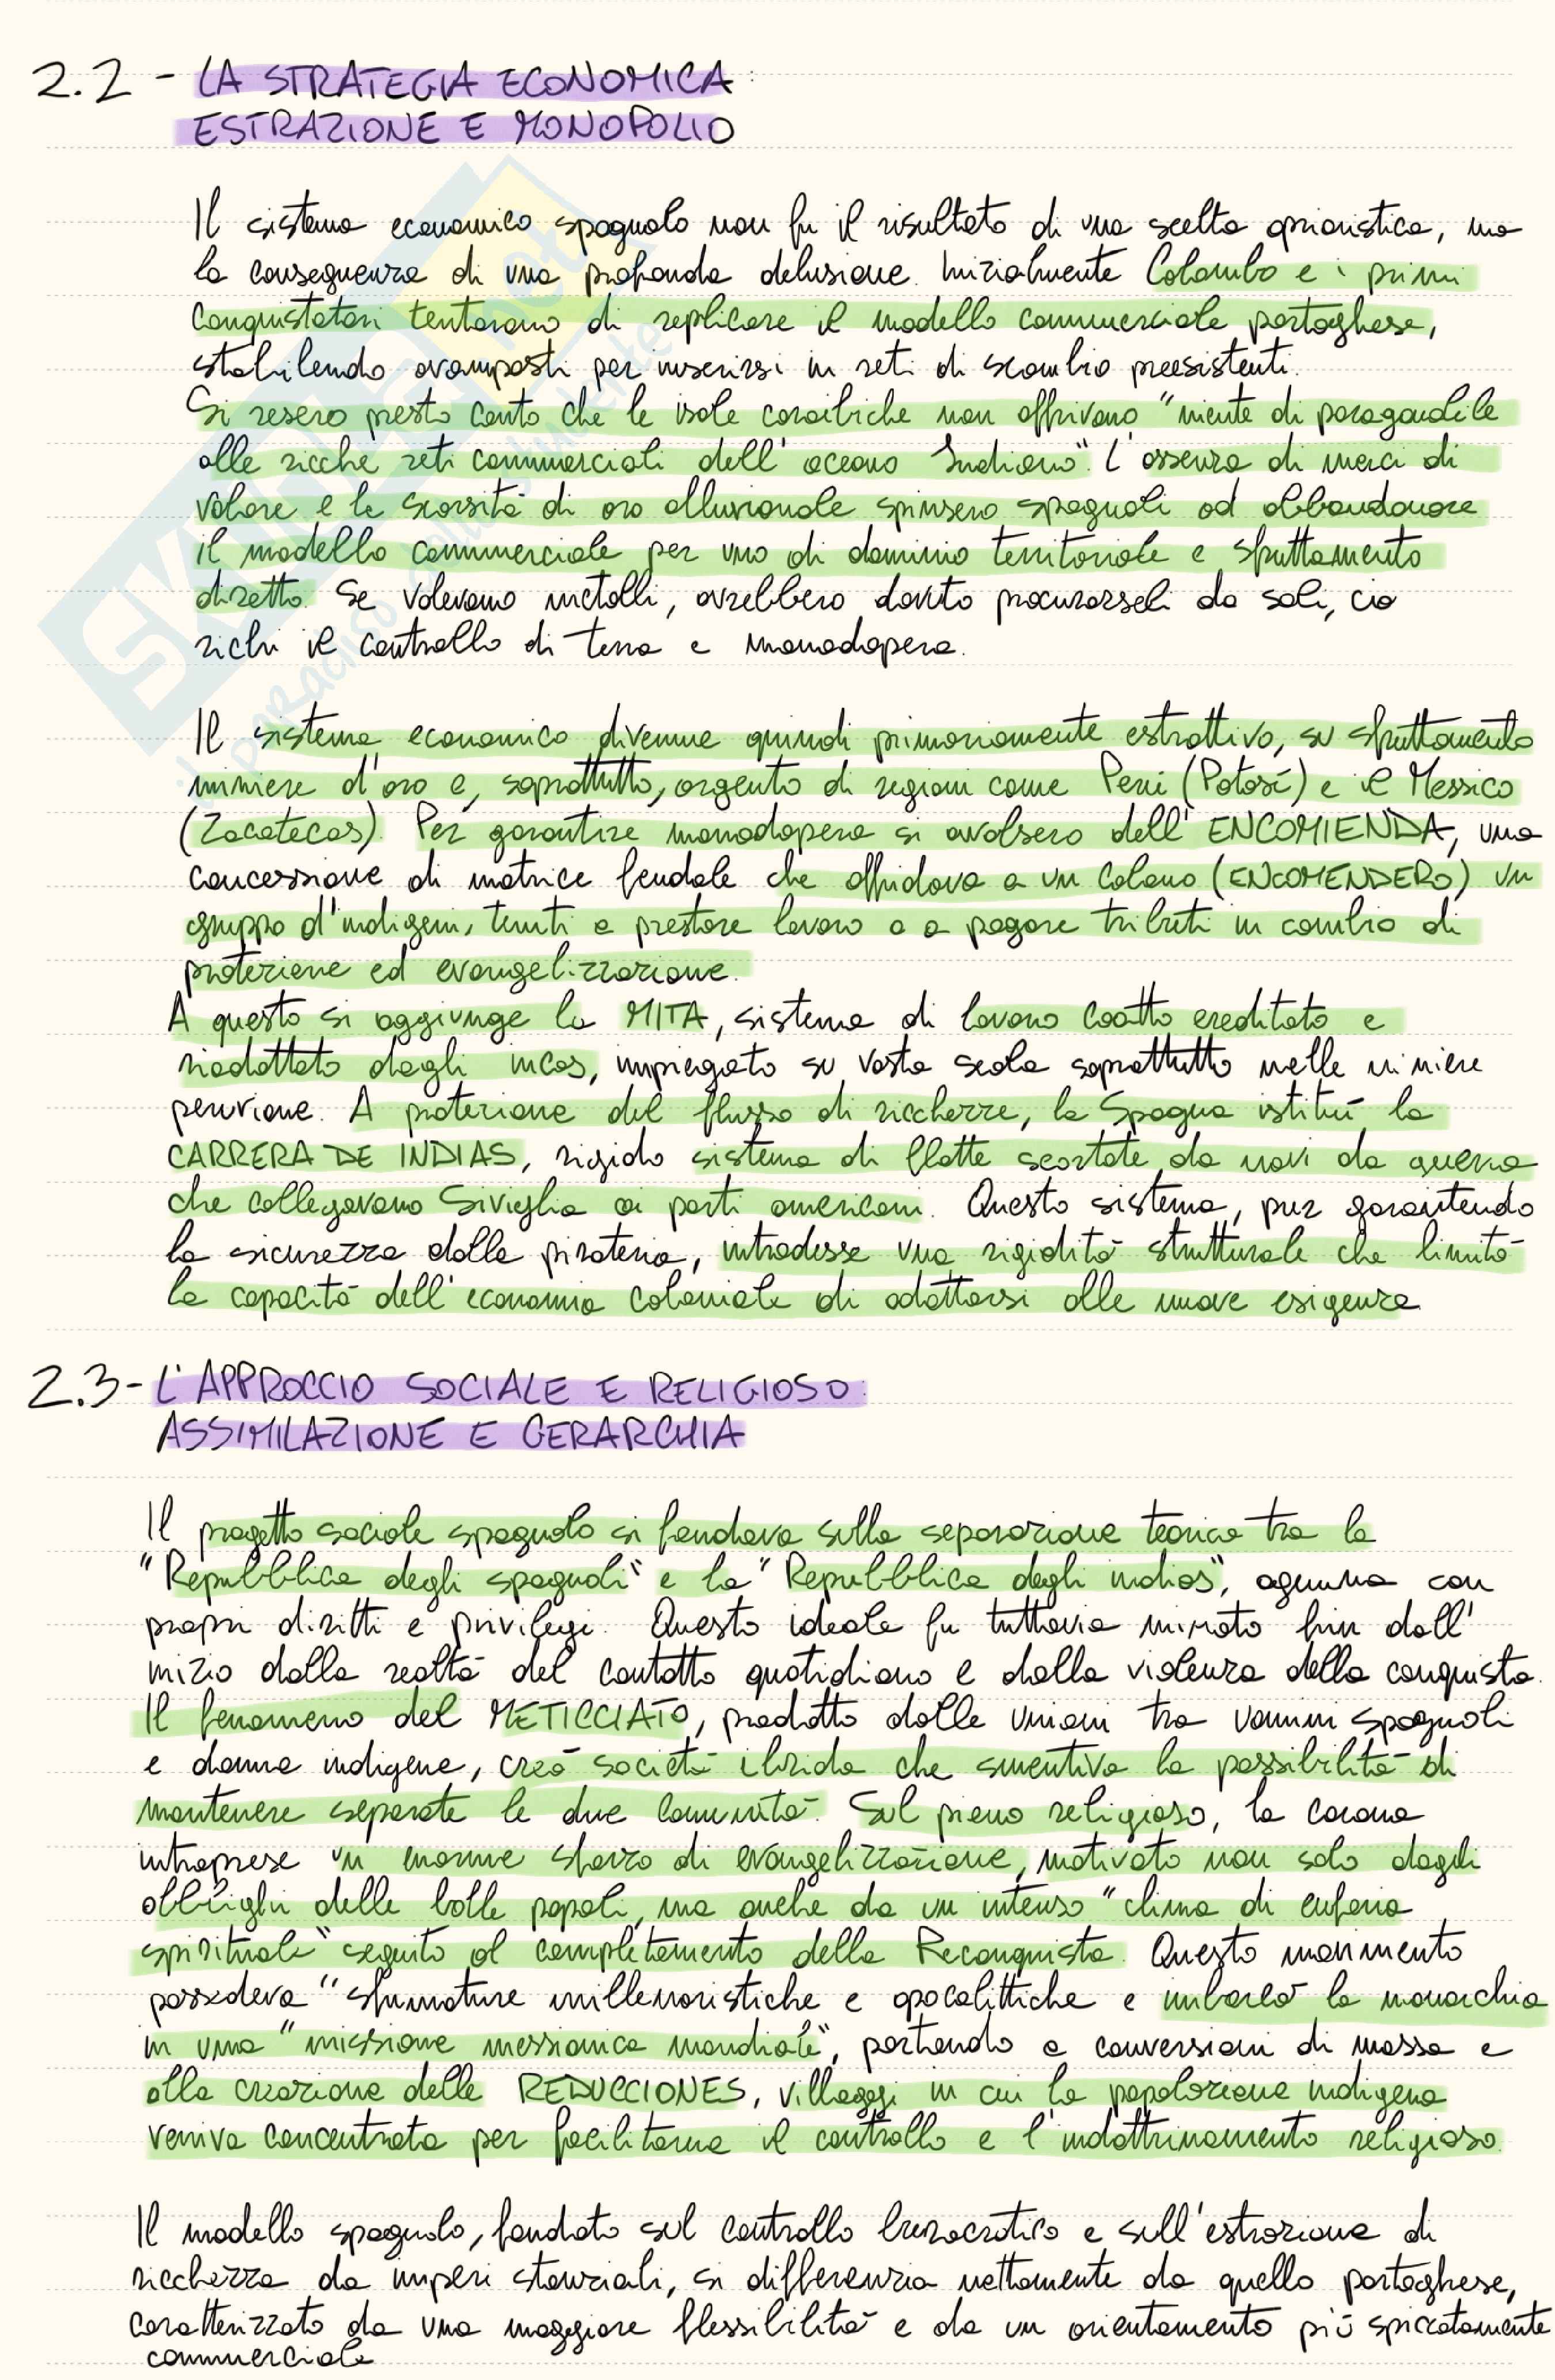 2.2 - LA STRATEGIA ECONOMICA:
ESTRAZIONE E MONOPOLIO
Il sistema economico spagnolo non fu il risultato di una scelta aprioristica, ma
la conseguenza di una profonda delusione. Inizialmente Colombo e i primi
conquistatori tentarono di replicare il modello commerciale portoghese,
stabilendo avamposti per inserirsi in reti di scambio preesistenti.
Si resero presto conto che le isole caraibiche non offrivano "niente di paragonabile
alle ricche reti commerciali dell'oceano Indiano". L'assenza di merci di
valore e la scarsità di oro alluvionale spinsero spagnoli ad abbandonare
il modello commerciale per uno di dominio territoriale e sfruttamento
diretto. Se volevano metalli, avrebbero dovuto procurarseli da soli, ciò
richi il controllo di terra e manodopera.
Il sistema economico divenne quindi primariamente estrattivo, su sfruttamento
miniere d'oro e, soprattutto, argento di regioni come Perù (Potosí) e il Messico
(Zacatecas). Per garantire manodopera si avalsero dell'ENCOMIENDA, una
concessione di matrice feudale che affidava a un colono (ENCOMENDERO) un
gruppo d'indigeni, tenuti a prestare lavoro o a pagare tributi in cambio di
protezione ed evangelizzazione.
A questo si aggiunge la MITA, sistema di lavoro coatto ereditato e
riadattato dagli incas, impiegato su vasta scala soprattutto nelle miniere
peruviane. A protezione del flusso di ricchezze, la Spagna istituì la
CARRERA DE INDIAS, rigido sistema di flotte scortate da navi da guerra
che collegavano Siviglia ai porti americani. Questo sistema, pur garantendo
la sicurezza dalla pirateria, introdusse una rigidità strutturale che limitò
la capacità dell'economia coloniale di adattarsi alle nuove esigenze
2.3 - L'APPROCCIO SOCIALE E RELIGIOSO:
ASSIMILAZIONE E GERARCHIA
Il progetto sociale spagnolo si fondava sulla separazione teorica tra la
"Repubblica degli spagnoli" e la "Repubblica degli indios", ognuna con
propri diritti e privilegi. Questo ideale fu tuttavia minato fin dall'
inizio dalla realtà del contatto quotidiano e dalla violenza della conquista.
Il fenomeno del METICCIATO, prodotto dalle unioni tra uomini spagnoli
e donne indigene, creò società ibrida che smentiva la possibilità di
mantenere separate le due comunità. Sul piano religioso, la corona
intraprese un enorme sforzo di evangelizzazione, motivato non solo dagli
obblighi delle bolle papali, ma anche da un intenso "clima di euforia
spirituale" seguito al completamento della Reconquista. Questo movimento
possedeva "sfumature millenaristiche e apocalittiche e imbarcò la monarchia
in una "missione messianica mondiale", portando a conversioni di massa e
alla creazione delle REDUCCIONES, villaggi in cui la popolazione indigena
veniva concentrata per facilitarne il controllo e l'indottrinamento religioso.
Il modello spagnolo, fondato sul controllo burocratico e sull'estrazione di
ricchezza da imperi stanziali, si differenzia nettamente da quello portoghese,
caratterizzato da una maggiore flessibilità e da un orientamento più spiccatamente
commerciale